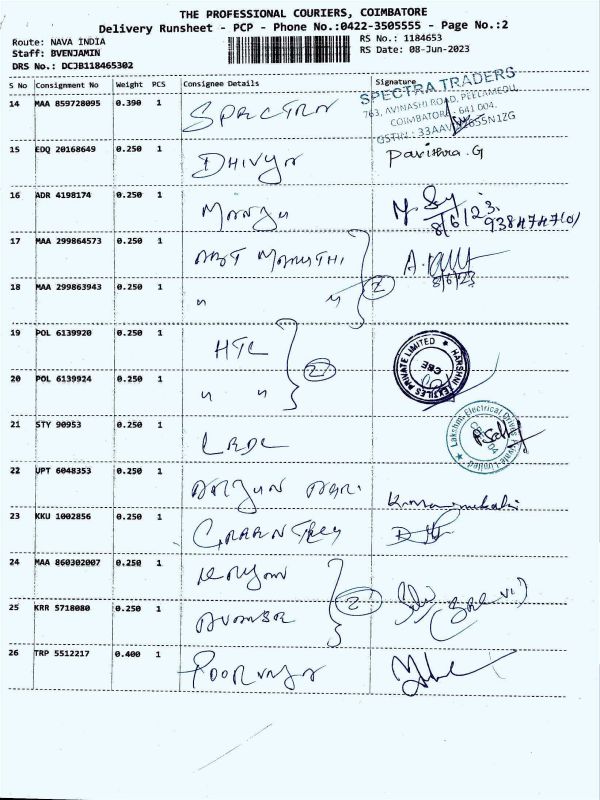 THE PROFESSIONAL COURIERS, COIMBATORE
Delivery Runsheet - PCP - Phone No.:0422-3505555 - Page No.:2
Route: NAVA INDIA RS No.: 1184653
Staff: BVENJAMIN RS Date: 08-Jun-2023
DRS No.: DCJB118465302
S No Consignment No Weight PCS Consignee Details Signature
SPECTRA TRADERS
763, AVINASHI ROAD, PEELAMEDU,
COIMBATORE - 641 004.
14 MAA 859728095 0.390 1 SPECTRA
15 EDQ 20168649 0.250 1 DHIVYA Pavithra.G
16 ADR 4198174 0.250 1 MANJU 8/6/23
17 MAA 299864573 0.250 1 ABT MARUTHI 8/6/23
18 MAA 299863943 0.250 1 " " 2
19 POL 6139920 0.250 1 HTL 2 HARSHNI TEXTILES PRIVATE LIMITED
20 POL 6139924 0.250 1 " "
21 STY 90953 0.250 1 Lakshmi Electrical Drives Private Limited
22 UPT 6048353 0.250 1 ARJUN
23 KKU 1002856 0.250 1
24 MAA 860302007 0.250 1 2
25 KRR 5718080 0.250 1
26 TRP 5512217 0.400 1 POORVAJA